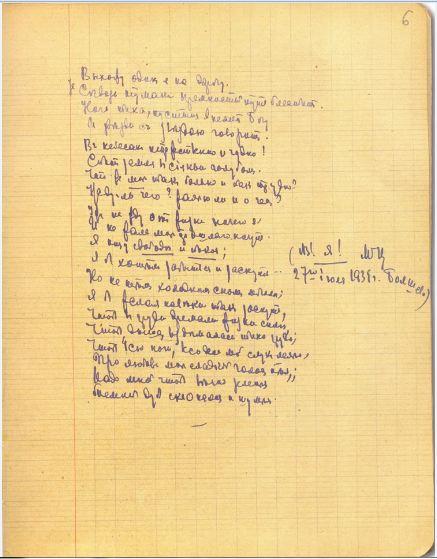 6
Выхожу один я на дорогу.
Сквозь туман кремнистый путь блестит.
Ночь тиха, пустыня внемлет Богу
И звезда с звездою говорит.
В небесах торжественно и чудно!
Спит земля в сияньи голубом.
Что же мне так больно и так трудно?
Жду ль чего? жалею ли о чем?
Уж не жду от жизни ничего я
И не жаль мне прошлого ничуть.
Я ищу свободы и покоя;
Я б хотел забыться и заснуть...
(М! я! МЦ
27го июля 1939г. Болшево)
Но не тем холодным сном могилы;
Я б желал навеки так заснуть,
Чтоб в груди дремали жизни силы,
Чтоб дыша вздымалась тихо грудь;
Чтоб всю ночь, весь день мой слух лелея,
Про любовь мне сладкий голос пел;
Надо мной чтоб вечно зеленея
Темный дуб склонялся и шумел.